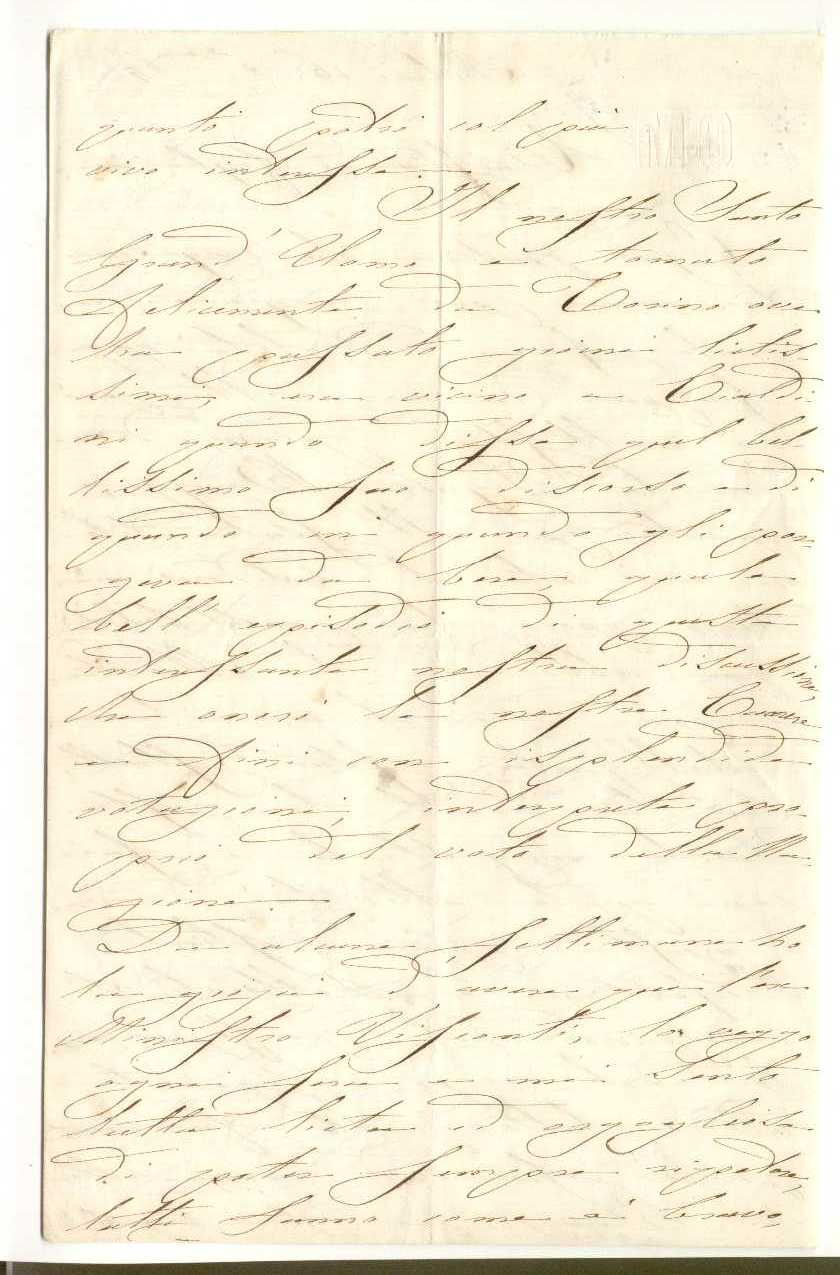 quanto potrò col più
vivo interesse.
Il nostro Santo
Grand' Uomo è tornato
felicemente da Torino ove
ha passato giorni lietis-
simi, era vicino a Cialdi-
ni quando disse quel bel-
lissimo suo discorso e di
quando in quando gli por-
geva da bere, quale
bell' episodio di questa
interessante nostra discussione,
che onorò la nostra Camera
e finì con isplendida
votazione, interprete pro-
prio del voto della Na-
zione
Da alcune settimane ho
la gioja d'avere qui l'ex
Ministro Visconti, lo veggo
ogni sera e mi sento
tutta lieta ed orgogliosa
di poter sempre ripetere,
tutti sanno come è bravo,